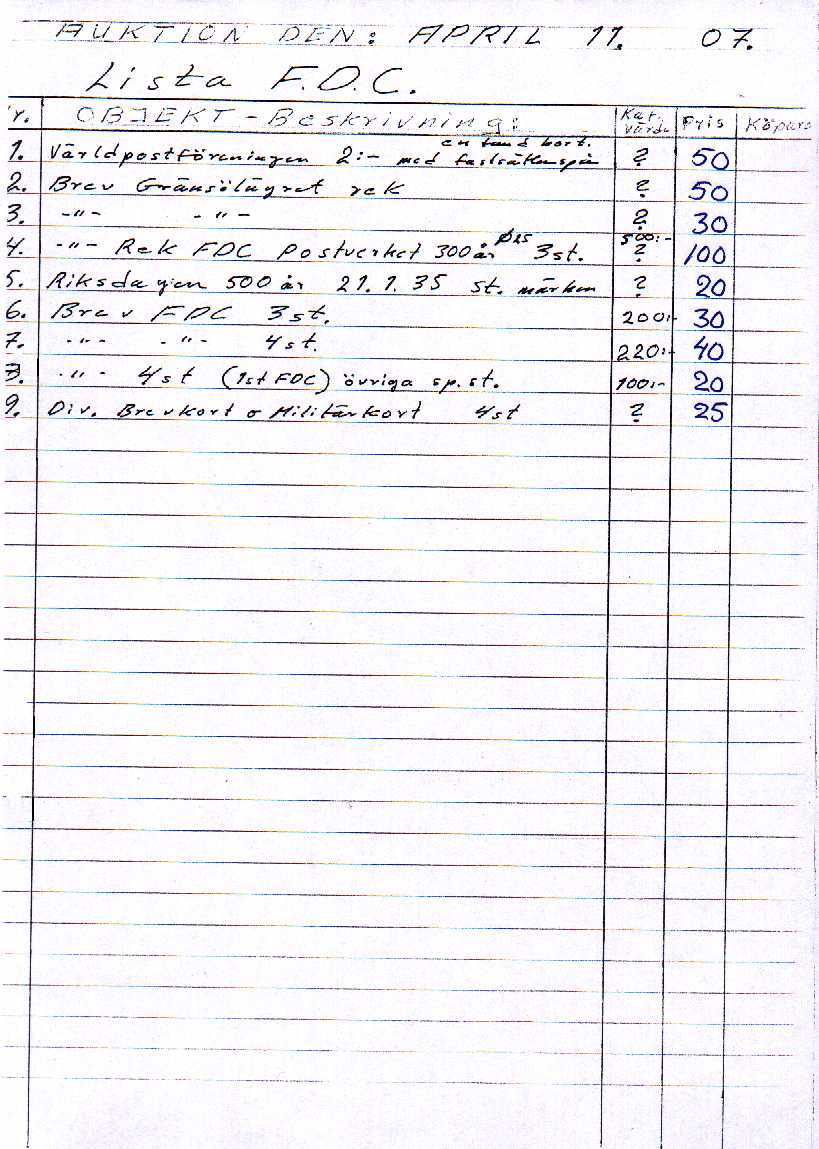 AUKTION DEN: APRIL 11. 07.
Lista F.D.C.
r. OBJEKT - Beskrivning: Kat. värde Pris Köpare
en tand bort.
1. Världpostföreningen 2:- med fastsättenspår ? 50
2. Brev Gränsölägret rek ? 50
3. -"- -"- ? 30
4. -"- Rek FDC Postverket 300år Ø25 3st. 500:- ? 100
5. Riksdagen 500 år 21.1.35 st. märken ? 20
6. Brev FDC 3st. 200:- 30
7. -"- -"- 4st. 220:- 40
8. -"- 4st (1st FDC) övriga sp.st. 100:- 20
9. Div. Brevkort o Militärkort 4st ? 25